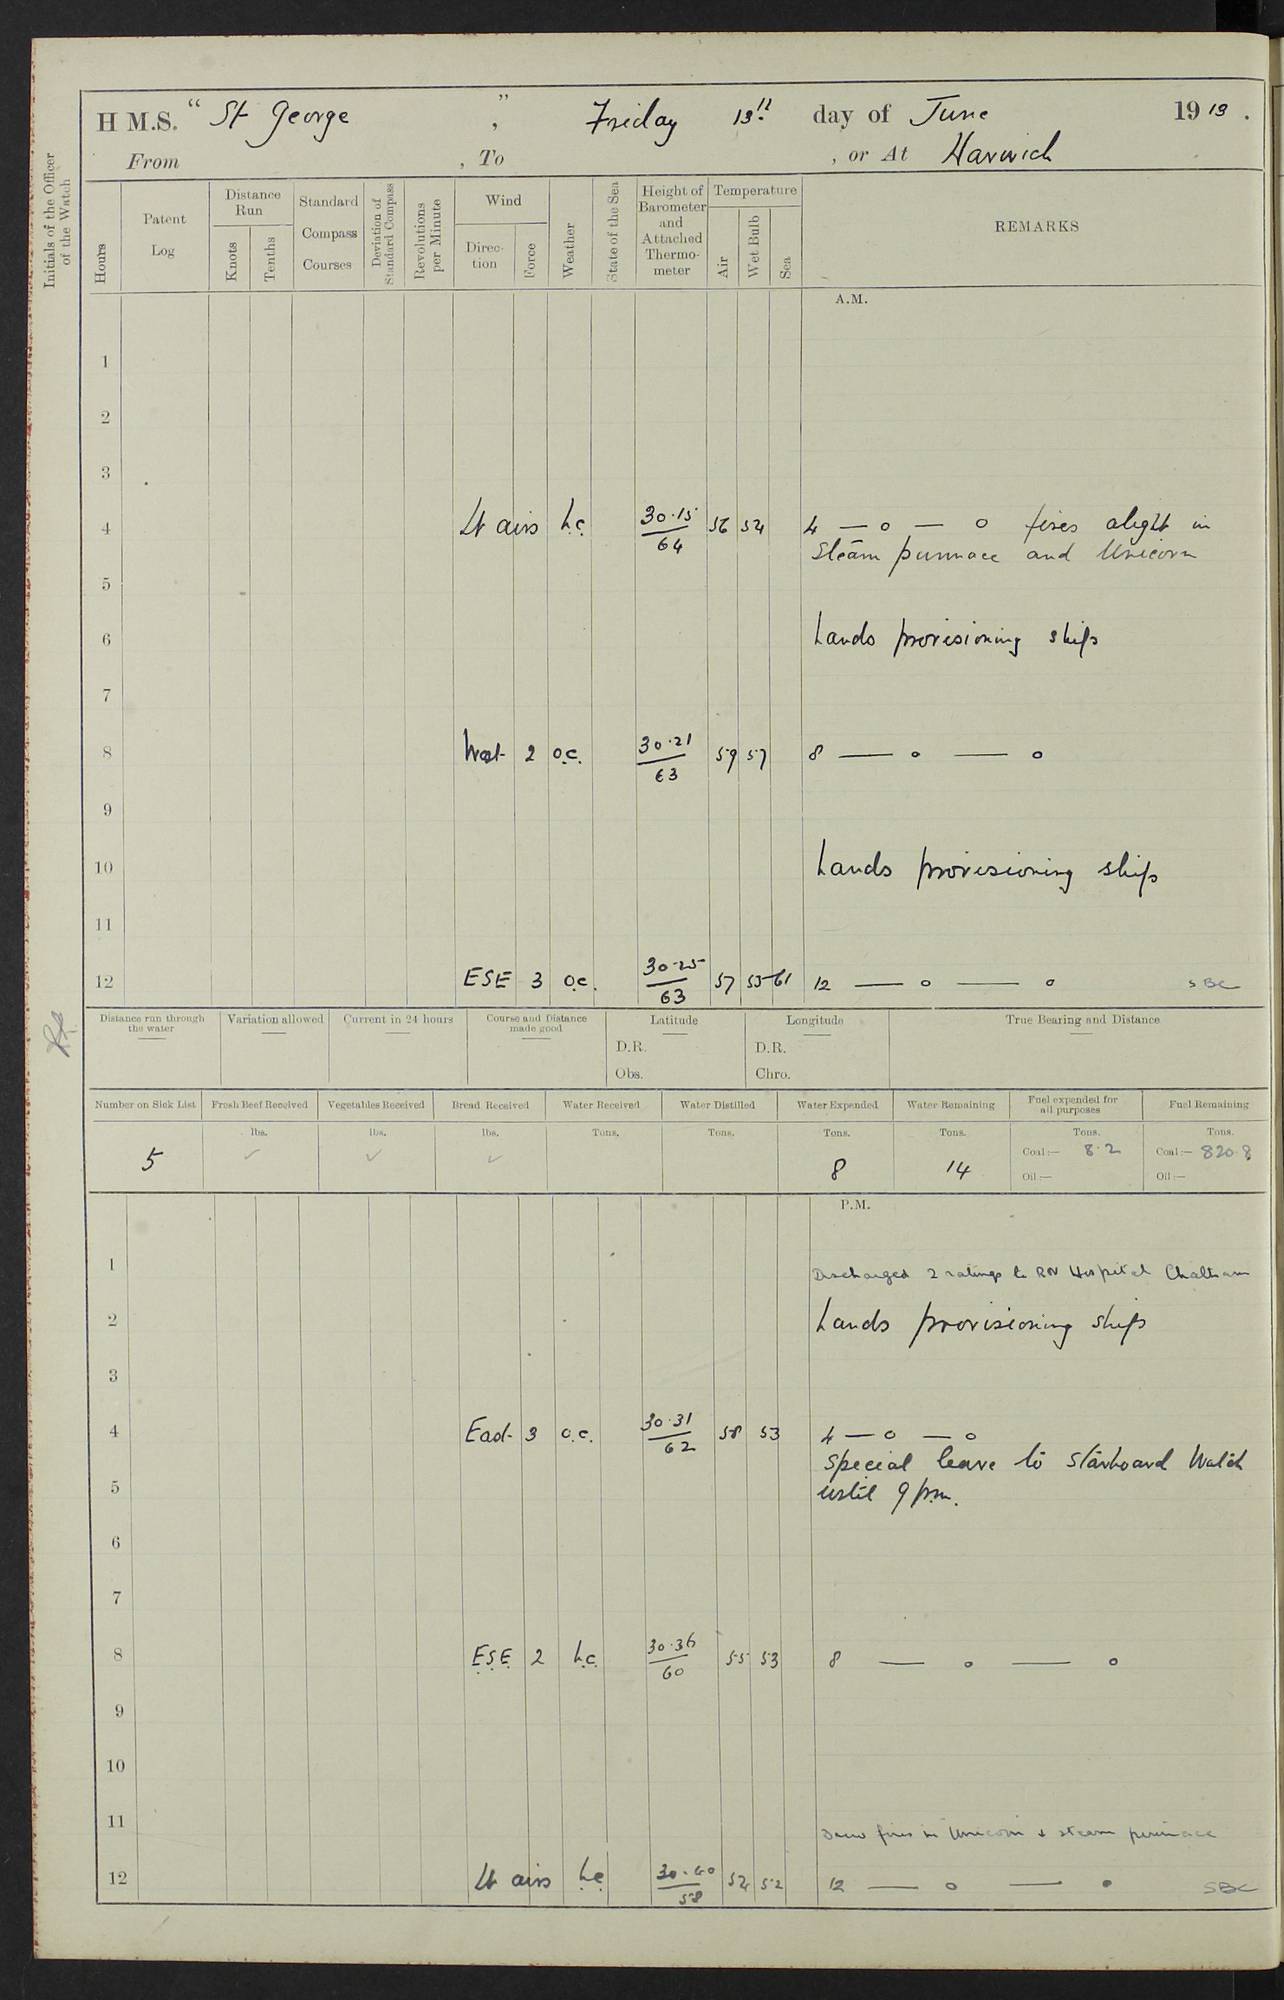 H M.S. "St George", Friday 13th day of June 1913.
From , To , or At Harwich
Initials of the Officer of the Watch
Hours
Patent Log
Distance Run
Knots
Tenths
Standard Compass Courses
Deviation of Standard Compass
Revolutions per Minute
Wind
Direction
Force
Weather
State of the Sea
Height of Barometer and Attached Thermometer
Temperature
Air
Wet Bulb
Sea
REMARKS
A.M.
1
2
3
4 Lt airs b.c. 30.15/64 56 54 4 — o — o fires alight in
Steam pinnace and Unicorn
5
6 Hands provisioning ships
7
8 West 2 o.c. 30.21/63 59 57 8 — o — o
9
10 Hands provisioning ships
11
12 ESE 3 o.c. 30.25/63 57 55 61 12 — o — o SBC
Distance run through the water
Variation allowed
Current in 24 hours
Course and Distance made good
Latitude
D.R.
Obs.
Longitude
D.R.
Chro.
True Bearing and Distance
Number on Sick List
Fresh Beef Received
Vegetables Received
Bread Received
Water Received
Water Distilled
Water Expended
Water Remaining
Fuel expended for all purposes
Fuel Remaining
lbs. lbs. lbs. Tons. Tons. Tons. Tons. Tons. Tons.
5 ✓ ✓ ✓ 8 14 Coal:— 8.2 Coal:— 820.8
Oil:— Oil:—
P.M.
1 Discharged 2 ratings to RN Hospital Chatham
2 Hands provisioning ships
3
4 East 3 o.c. 30.31/62 58 53 4 — o — o
Special leave to starboard Watch
5 until 9 p.m.
6
7
8 E.S.E. 2 b.c. 30.36/60 55 53 8 — o — o
9
10
11 Drew fires in Unicorn & steam pinnace
12 Lt airs b.c. 30.40/58 54 52 12 — o — o SBC